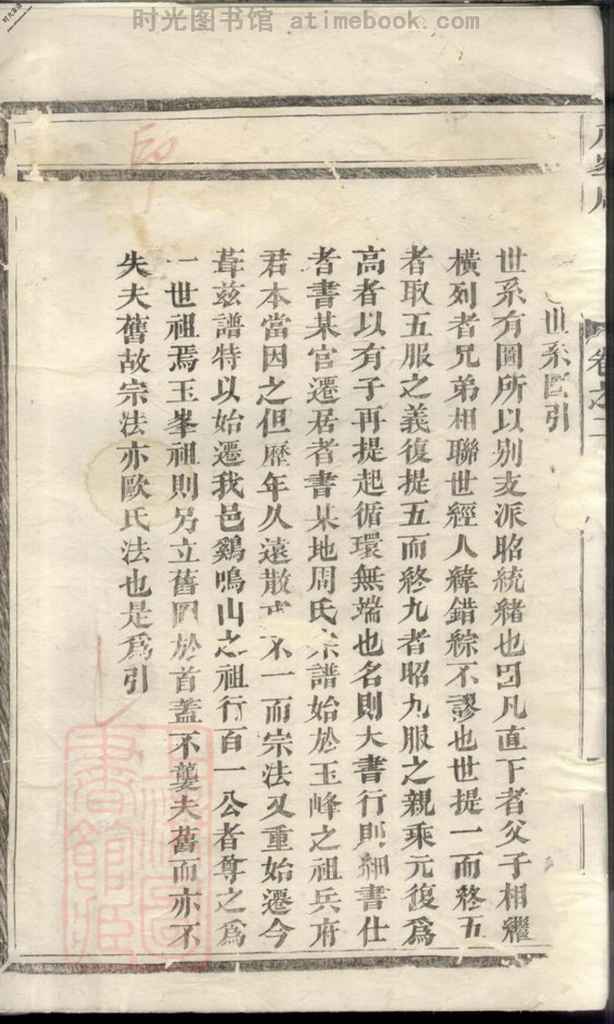 时光图书馆 atimebook.com
印
卷之二
世系圖引
世系有圖所以别支派昭統緒也圖凡直下者父子相繼
橫列者兄弟相聯世經人緯錯綜不謬也世提一而終五
者取五服之義復提五而終九者昭九服之親乘元復爲
高者以有子再提起循環無端也名則大書行則細書仕
者書某官遷居者書某地周氏宗譜始於玉峰之祖兵府
君本當因之但歷年久遠散 不一而宗法又重始遷今
葺兹譜特以始遷我邑鷄鳴山之祖行百一公者尊之爲
一世祖焉玉峯祖則另立舊圖於首蓋不襲夫舊而亦不
失夫舊故宗法亦歐氏法也是爲引